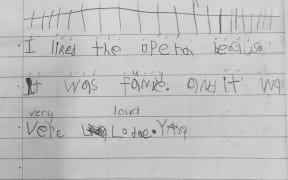 I liked the opera because
It was fanne. and it was
very loud
Vere Lodae. Yaq